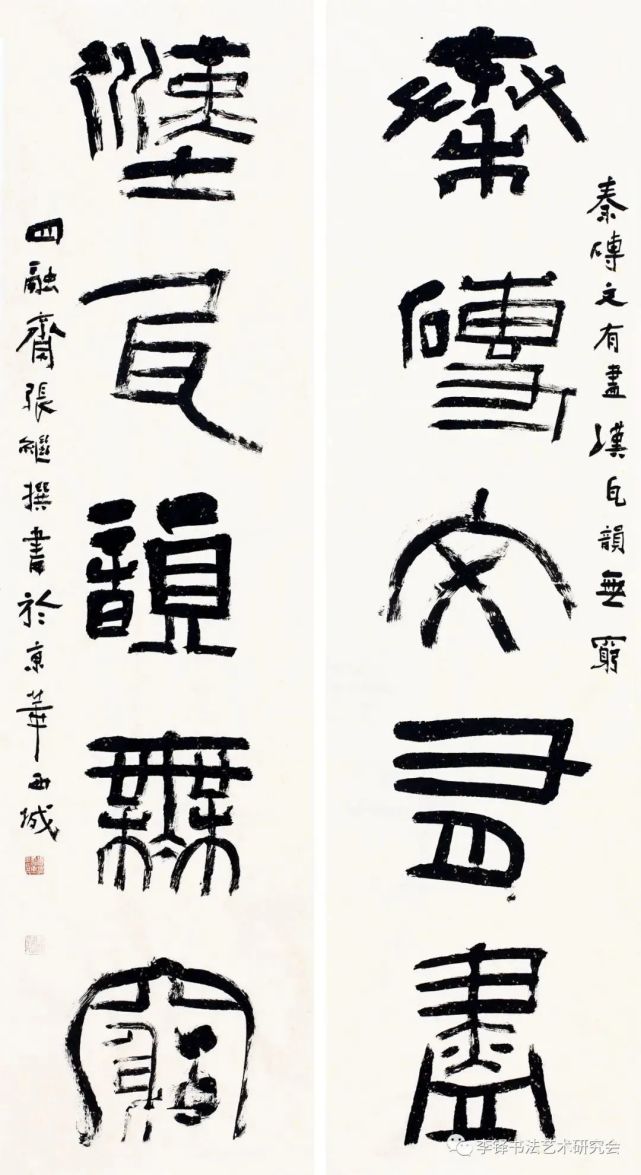 秦磚文有盡
秦磚文有盡漢瓦韻無窮
漢瓦韻無窮
四融齋張繼撰書於京華西城
李铎书法艺术研究会